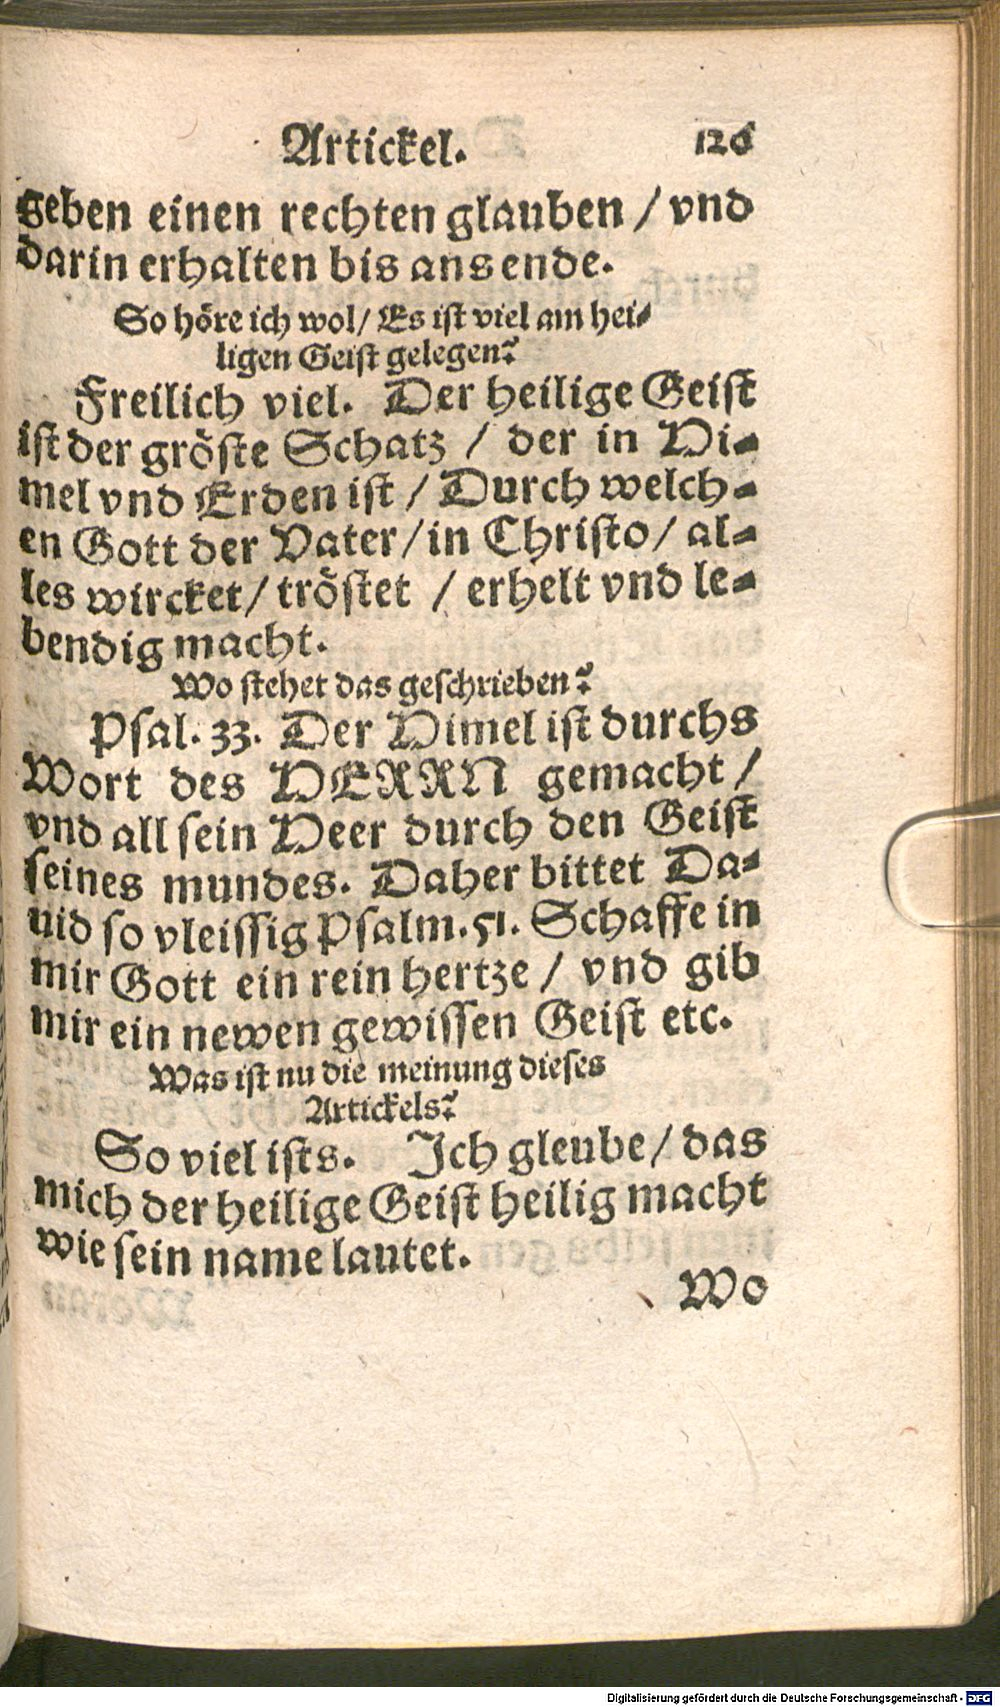 Artickel. 126
geben einen rechten glauben / vnd
darin erhalten bis ans ende.
So höre ich wol / Es ist viel am hei-
ligen Geist gelegen?
Freilich viel. Der heilige Geist
ist der gröste Schatz / der in Hi-
mel vnd Erden ist / Durch welch-
en Gott der Vater / in Christo / al-
les wircket / tröstet / erhelt vnd le-
bendig macht.
Wo stehet das geschrieben?
Psal. 33. Der Himel ist durchs
Wort des HERRN gemacht /
vnd all sein Heer durch den Geist
seines mundes. Daher bittet Da-
uid so vleissig Psalm. 51. Schaffe in
mir Gott ein rein hertze / vnd gib
mir ein newen gewissen Geist etc.
Was ist nu die meinung dieses
Artickels?
So viel ists. Ich gleube / das
mich der heilige Geist heilig macht
wie sein name lautet.
Wo
Digitalisierung gefördert durch die Deutsche Forschungsgemeinschaft - DFG